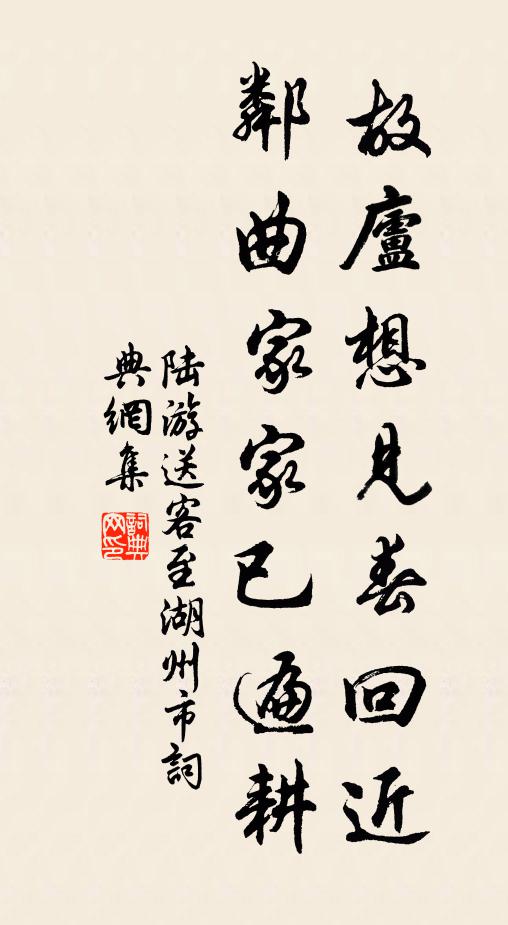 故廬想見春回近
鄰曲家家已遍耕
陆游送客至湖州市詞
典網集
詞典
网印